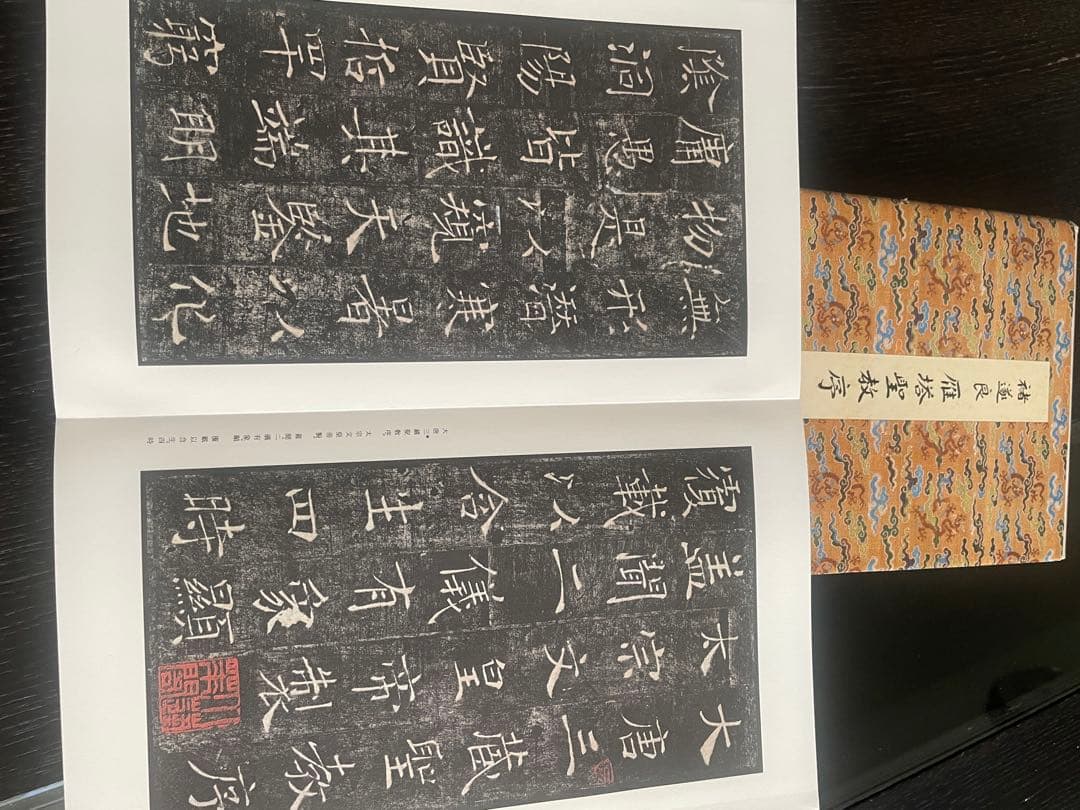 褚遂良
雁塔聖教序
大唐三藏聖教序
太宗文皇帝製
蓋聞二儀有像顯
覆載以含生四時
大唐三藏聖教序。
太宗文皇帝製。
蓋聞二儀有象顯
覆載以含生四時
無形潛寒暑以化
物是以窺天鑒地
庸愚皆識其端明
陰洞陽賢哲罕窮